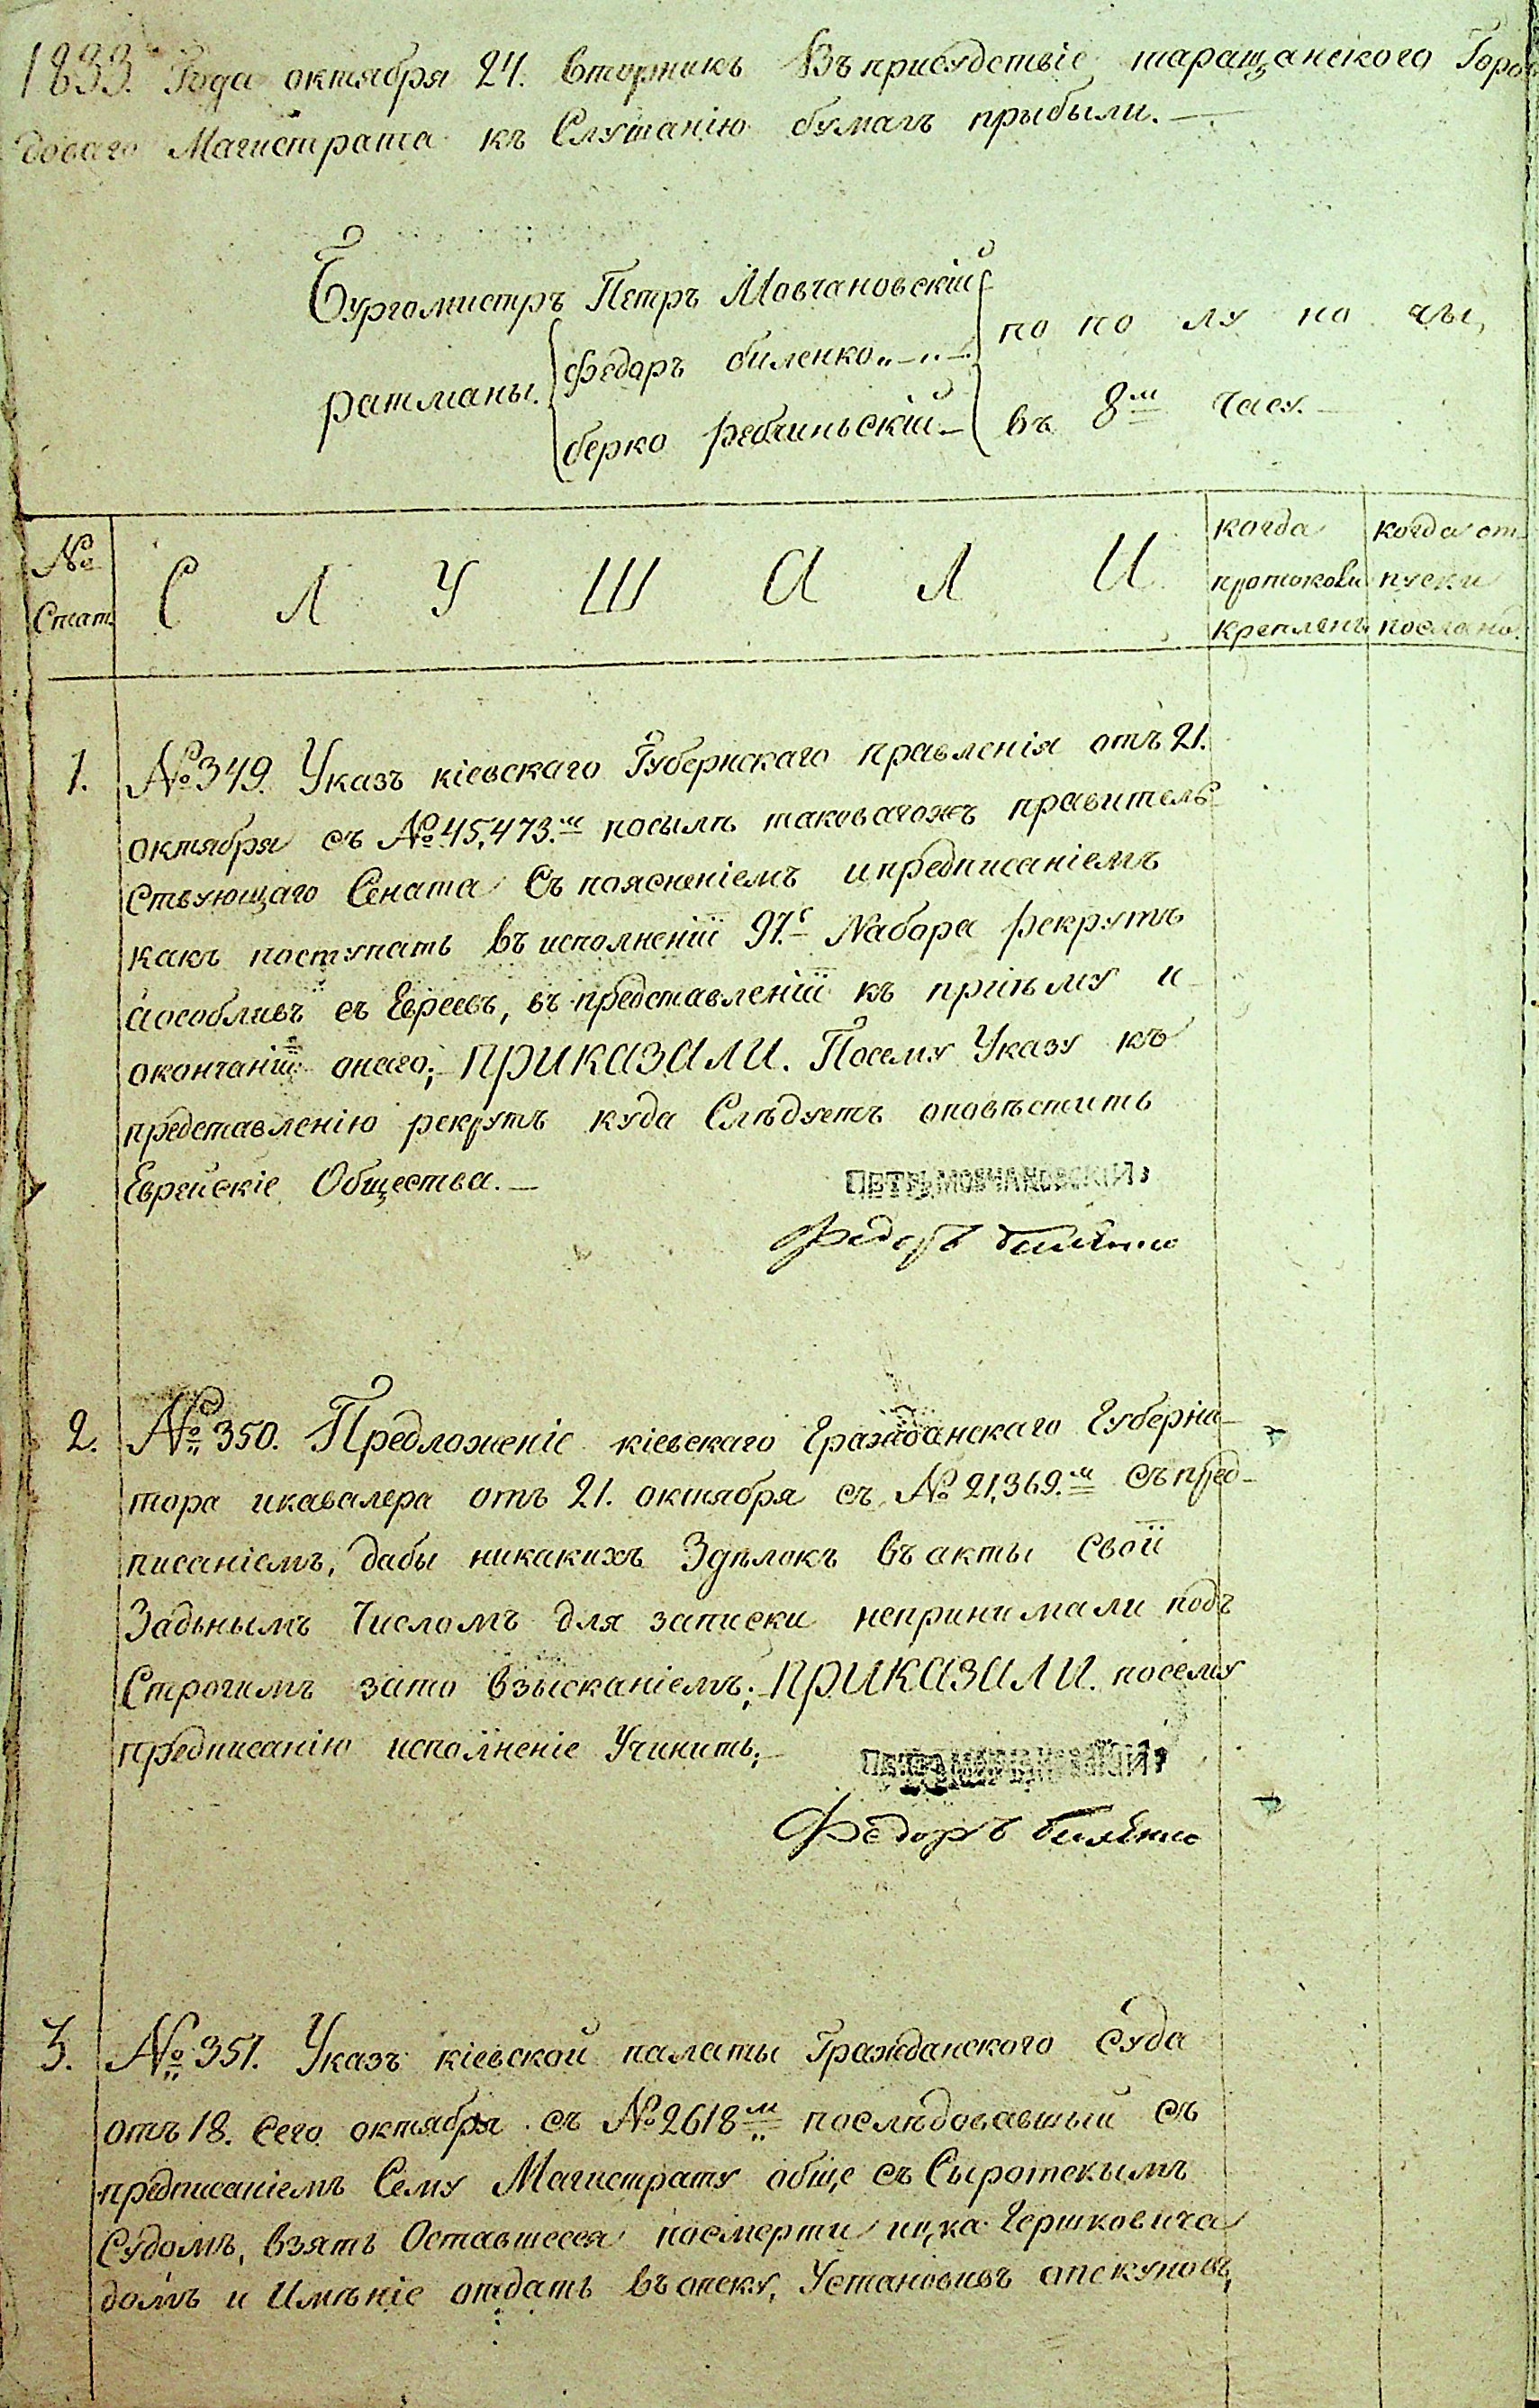 1833. Года октября 24. Вторникъ Въ присудствіе таращанского Горо
доваго Магистрата къ Слушанію бумагъ прыбыли.—
Бургомистръ Петръ Мовчановскій
ратманы.
Федоръ биленко
берко
по по лу но чы,
въ 8м часу.—
№
Стат.
С Л У Ш А Л И
когда
протоколъ
крепленъ
когда от-
пуски
послано.
1. №349. Указъ кіевскаго Губернскаго правленія отъ 21.
октября съ №45,473.м посылъ таковагожъ правитель-
ствующаго Сената Съ поясненіемъ ипредписаніемъ
какъ поступать въ исполненіи 97.г Набора рекрутъ
аособливѣ съ Евреевъ, въ представленіи къ пріиъму и
окончаніи онаго; ПРИКАЗАЛИ. Посему Указу къ
представленію рекрутъ куда Слѣдуетъ оповѣстить
Еврейскіе Общества.—
ПЕТРЪ МОВЧАНОВСКІЙ
Федоръ биленко
2. №350. Предложеніе кіевскаго Гражданскаго Губерна-
тора икавалера отъ 21. октября съ №21,369.м съ пред-
писаніемъ, дабы никакихъ Здѣлокъ въ акты свои
Задьнымъ Числомъ для записки непринимали подъ
Строгимъ зато взысканіемъ; ПРИКАЗАЛИ. посему
предписанію исполненіе Учинить;—
ПЕТРЪ МОВЧАНОВСКІЙ
Федоръ биленко
3. №351. Указъ кіевской палаты Гражданского Суда
отъ 18. сего октября съ №2618м послѣдовавшый съ
предписаніемъ Сему Магистрату обще съ Сыротскымъ
Судомъ, взять Оставшееся посмерти ицка Гершковича
домъ и Имѣніе отдать въ опеку, Установивъ опекуновъ,